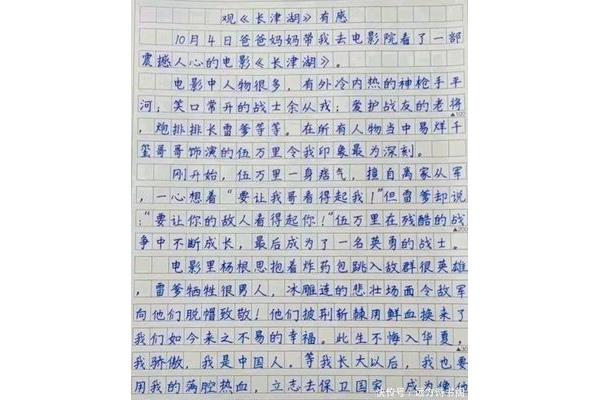 观《长津湖》有感
10月4日爸爸妈妈带我去电影院看了一部
震撼人心的电影《长津湖》。
电影中人物很多，有外冷内热的神枪手平
河；笑口常开的战士余从戎；爱护战友的老将
，炮排排长雷爹等等。在所有人物当中易烊千
玺哥哥饰演的伍万里令我印象最为深刻。
刚开始，伍万里一身痞气，擅自离家从军
，一心想着“要让我哥看得起我！”但雷爹却说
：“要让你的敌人看得起你！”伍万里在残酷的战
争中不断成长，最后成为了一名英勇的战士。
电影里杨根思抱着炸药包跳入敌群很英雄
，雷爹牺牲很男人，冰雕连的悲壮场面令敌军
向他们脱帽致敬！他们披荆斩棘用鲜血换来了
我们如今来之不易的幸福。此生不悔入华夏，
我骄傲，我是中国人。等我长大以后，我也要
用我的满腔热血，立志去保卫国家，成为像他